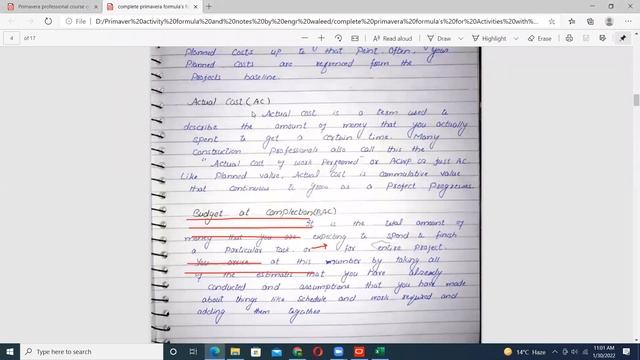 Primavera professional course c
complete primavera formula's f
D:/Primaver%20activity%20formula%20and%20notes%20by%20engr%20waleed/complete%20primavera%20formula's%20for%20Activities%20with%
4 of 17
Page view
Read aloud
Draw
Highlight
Erase
Planned costs up to that point. Often, year
planned costs are referenced form the
Projects baseline.
Actual Cost (AC)
Actual cost is a term used to
describe the amount of money that you actually
spent to get a certain time. Many
construction professionals also call this the
"Actual cost of work performed" or ACWP or just AC
Like planned value, Actual cost is commulative value
that continues to grow as a Project Progresses.
Budget at complection (BAC)
It is the total amount of
money that you are expecting to spend to finish
a particular task or for entire project.
You arrive at this number by taking all
of the estimates that you have already
conducted and assumptions that you have made
about things like schedule and work required and
adding them together
Type here to search
14°C Haze
11:01 AM
1/30/2022